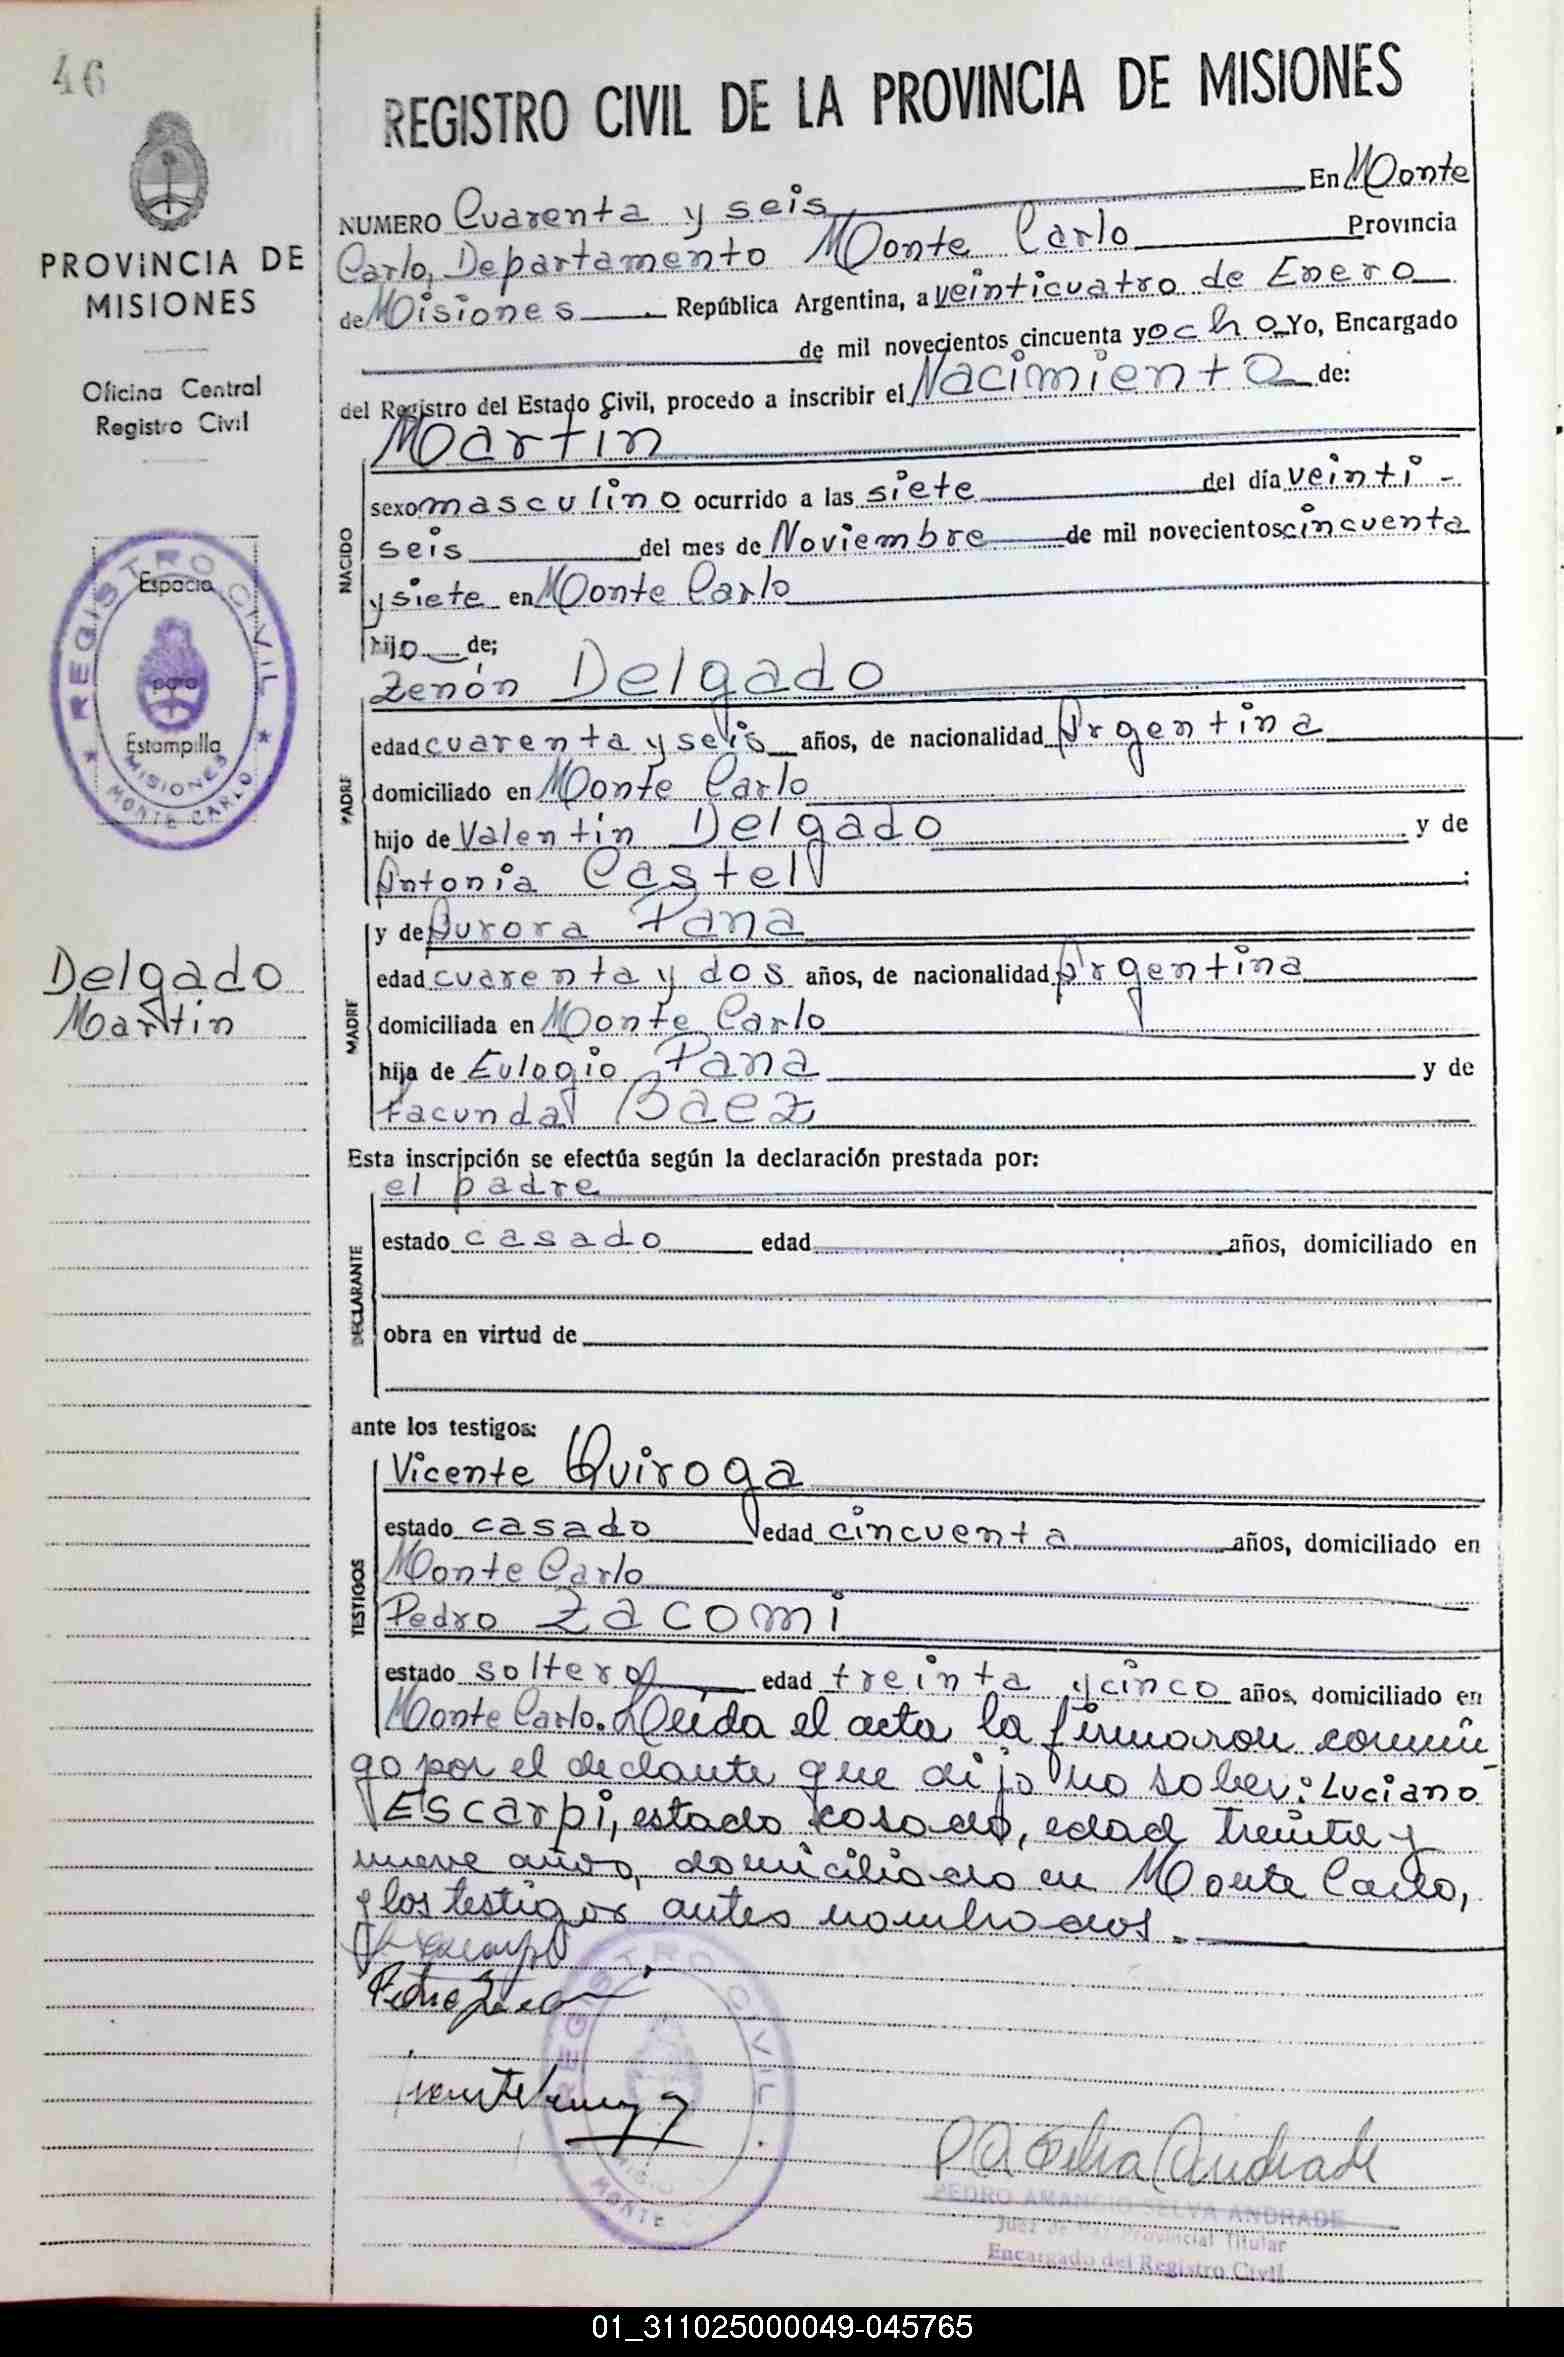 46
REGISTRO CIVIL DE LA PROVINCIA DE MISIONES
PROVINCIA DE
MISIONES
Oficina Central
Registro Civil
REGISTRO CIVIL
Espacio
para
Estampilla
MISIONES
MONTE CARLO
Delgado
Martin
NUMERO Cuarenta y seis En Monte
Carlo, Departamento Monte Carlo Provincia
de Misiones . República Argentina, a veinticuatro de Enero
de mil novecientos cincuenta y ocho. Yo, Encargado
del Registro del Estado Civil, procedo a inscribir el Nacimiento de:
NACIDO
Martin
sexo masculino ocurrido a las siete del día veinti-
seis del mes de Noviembre de mil novecientos cincuenta
y siete en Monte Carlo
hijo de;
PADRE
Zenón Delgado
edad cuarenta y seis años, de nacionalidad Argentina
domiciliado en Monte Carlo
hijo de Valentín Delgado y de
Antonia Castel
MADRE
y de Aurora Pana
edad cuarenta y dos años, de nacionalidad Argentina
domiciliada en Monte Carlo
hija de Eulogio Pana y de
Facunda Baez
Esta inscripción se efectúa según la declaración prestada por:
DECLARANTE
el padre
estado casado edad años, domiciliado en
obra en virtud de
ante los testigos:
TESTIGOS
Vicente Quiroga
estado casado edad cincuenta años, domiciliado en
Monte Carlo
Pedro Zacomi
estado soltero edad treinta y cinco años, domiciliado en
Monte Carlo. Leída el acta la firmaron conmi
go por el declante que dijo no saber: Luciano
Escarpi, estado casado, edad treinta y
nueve años, domiciliado en Monte Carlo,
y los testigos antes nombrados.
REGISTRO CIVIL
MONTE
P A Selva Andrade
PEDRO AMANCIO SELVA ANDRADE
Juez de Paz Provincial Titular
Encargado del Registro Civil
01_311025000049-045765